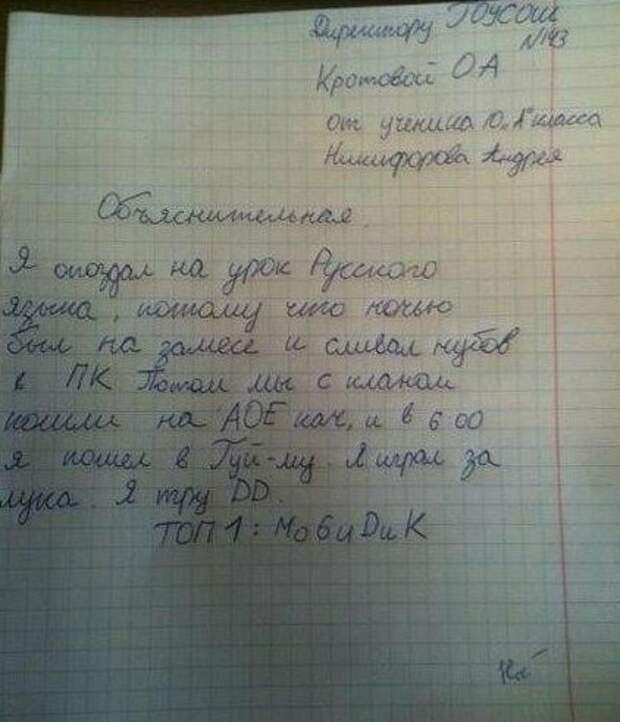 Директору ГБУСОШ
№143
Кротовой ОА
от ученика 10 „А" класса
Никифорова Андрея
Объяснительная.
Я опоздал на урок Русского
языка, потому что ночью
был на замесе и сливал нубов
в ПК Потом мы с кланом
пошли на АОЕ кач, и в 6 00
я пошел в Гуй-му. Я играл за
лука. Я тру DD.
ТОП 1: МоБиДиК